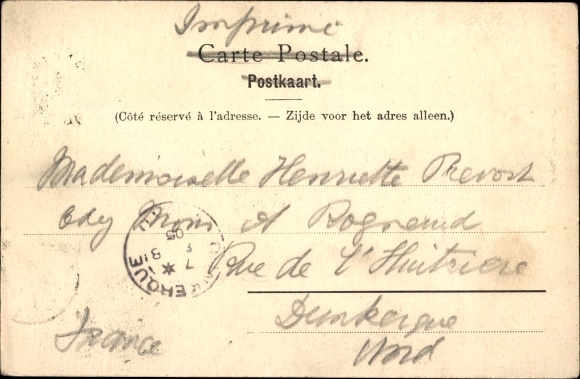 Imprimé
Carte Postale.
Postkaart.
(Côté réservé à l'adresse. — Zijde voor het adres alleen.)
Mademoiselle Henriette Prevost
Chez Mons A
Rue de l'Huitriere
Dunkerque
France Nord